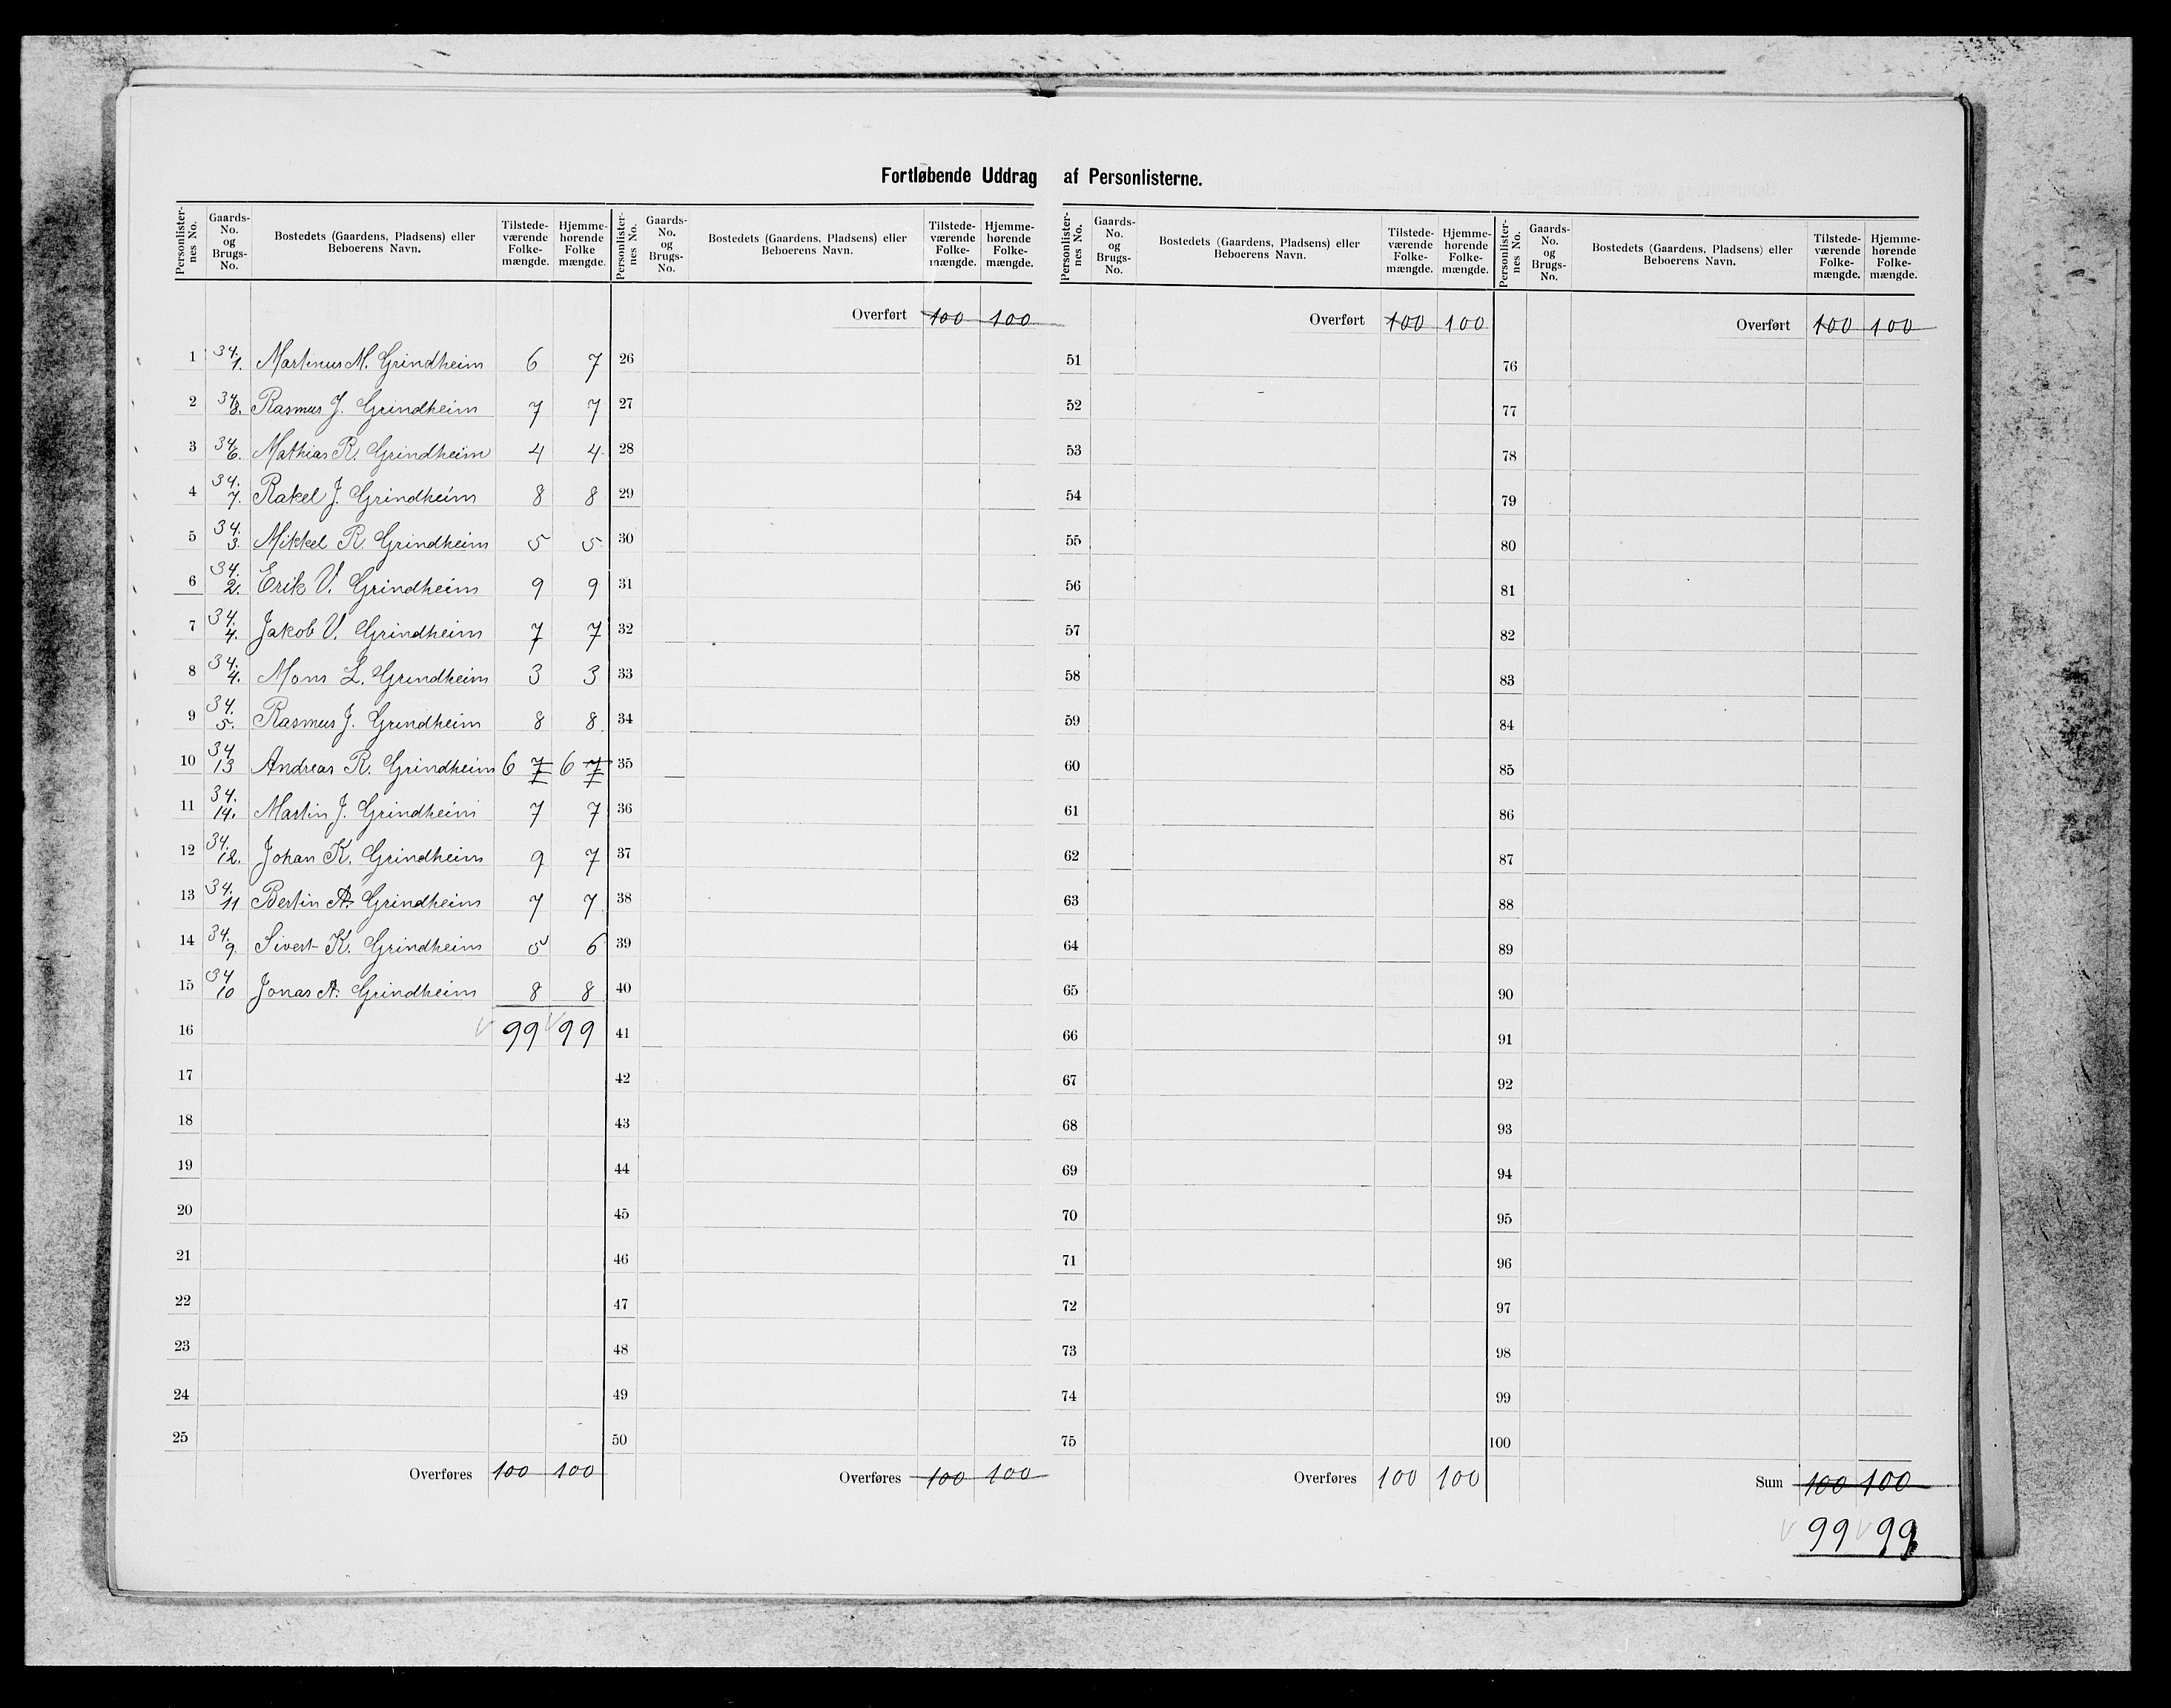 Fortløbende Uddrag af Personlisterne.
Personlisternes No. | Gaards-No. og Brugs-No. | Bostedets (Gaardens, Pladsens) eller Beboerens Navn. | Tilstedeværende Folkemængde. | Hjemmehørende Folkemængde.
1 34. 1. Martinus M. Grindheim 6 7
2 34. 8. Rasmus J. Grindheim 7 7
3 34. 6. Mathias R. Grindheim 4 4
4 34. 7. Rakel J. Grindheim 8 8
5 34. 3. Mikkel R. Grindheim 5 5
6 34. 2. Erik V. Grindheim 9 9
7 34. 4. Jakob V. Grindheim 7 7
8 34. 4. Mons L. Grindheim 3 3
9 34. 5. Rasmus J. Grindheim 8 8
10 34 13 Andreas R. Grindheim 6 7 6 7
11 34. 14. Martin J. Grindheim 7 7
12 34. 12. Johan K. Grindheim 9 7
13 34. 11 Bertin A. Grindheim 7 7
14 34. 9. Sivert K. Grindheim 5 6
15 34 10 Jonas A. Grindheim 8 8
16 99 99
17
18
19
20
21
22
23
24
25
Overføres 100 100
Personlisternes No. | Gaards-No. og Brugs-No. | Bostedets (Gaardens, Pladsens) eller Beboerens Navn. | Tilstedeværende Folkemængde. | Hjemmehørende Folkemængde.
Overført 100 100
26
27
28
29
30
31
32
33
34
35
36
37
38
39
40
41
42
43
44
45
46
47
48
49
50
Overføres 100 100
Personlisternes No. | Gaards-No. og Brugs-No. | Bostedets (Gaardens, Pladsens) eller Beboerens Navn. | Tilstedeværende Folkemængde. | Hjemmehørende Folkemængde.
Overført 100 100
51
52
53
54
55
56
57
58
59
60
61
62
63
64
65
66
67
68
69
70
71
72
73
74
75
Overføres 100 100
Personlisternes No. | Gaards-No. og Brugs-No. | Bostedets (Gaardens, Pladsens) eller Beboerens Navn. | Tilstedeværende Folkemængde. | Hjemmehørende Folkemængde.
Overført 100 100
76
77
78
79
80
81
82
83
84
85
86
87
88
89
90
91
92
93
94
95
96
97
98
99
100
Sum 100 100
99 99